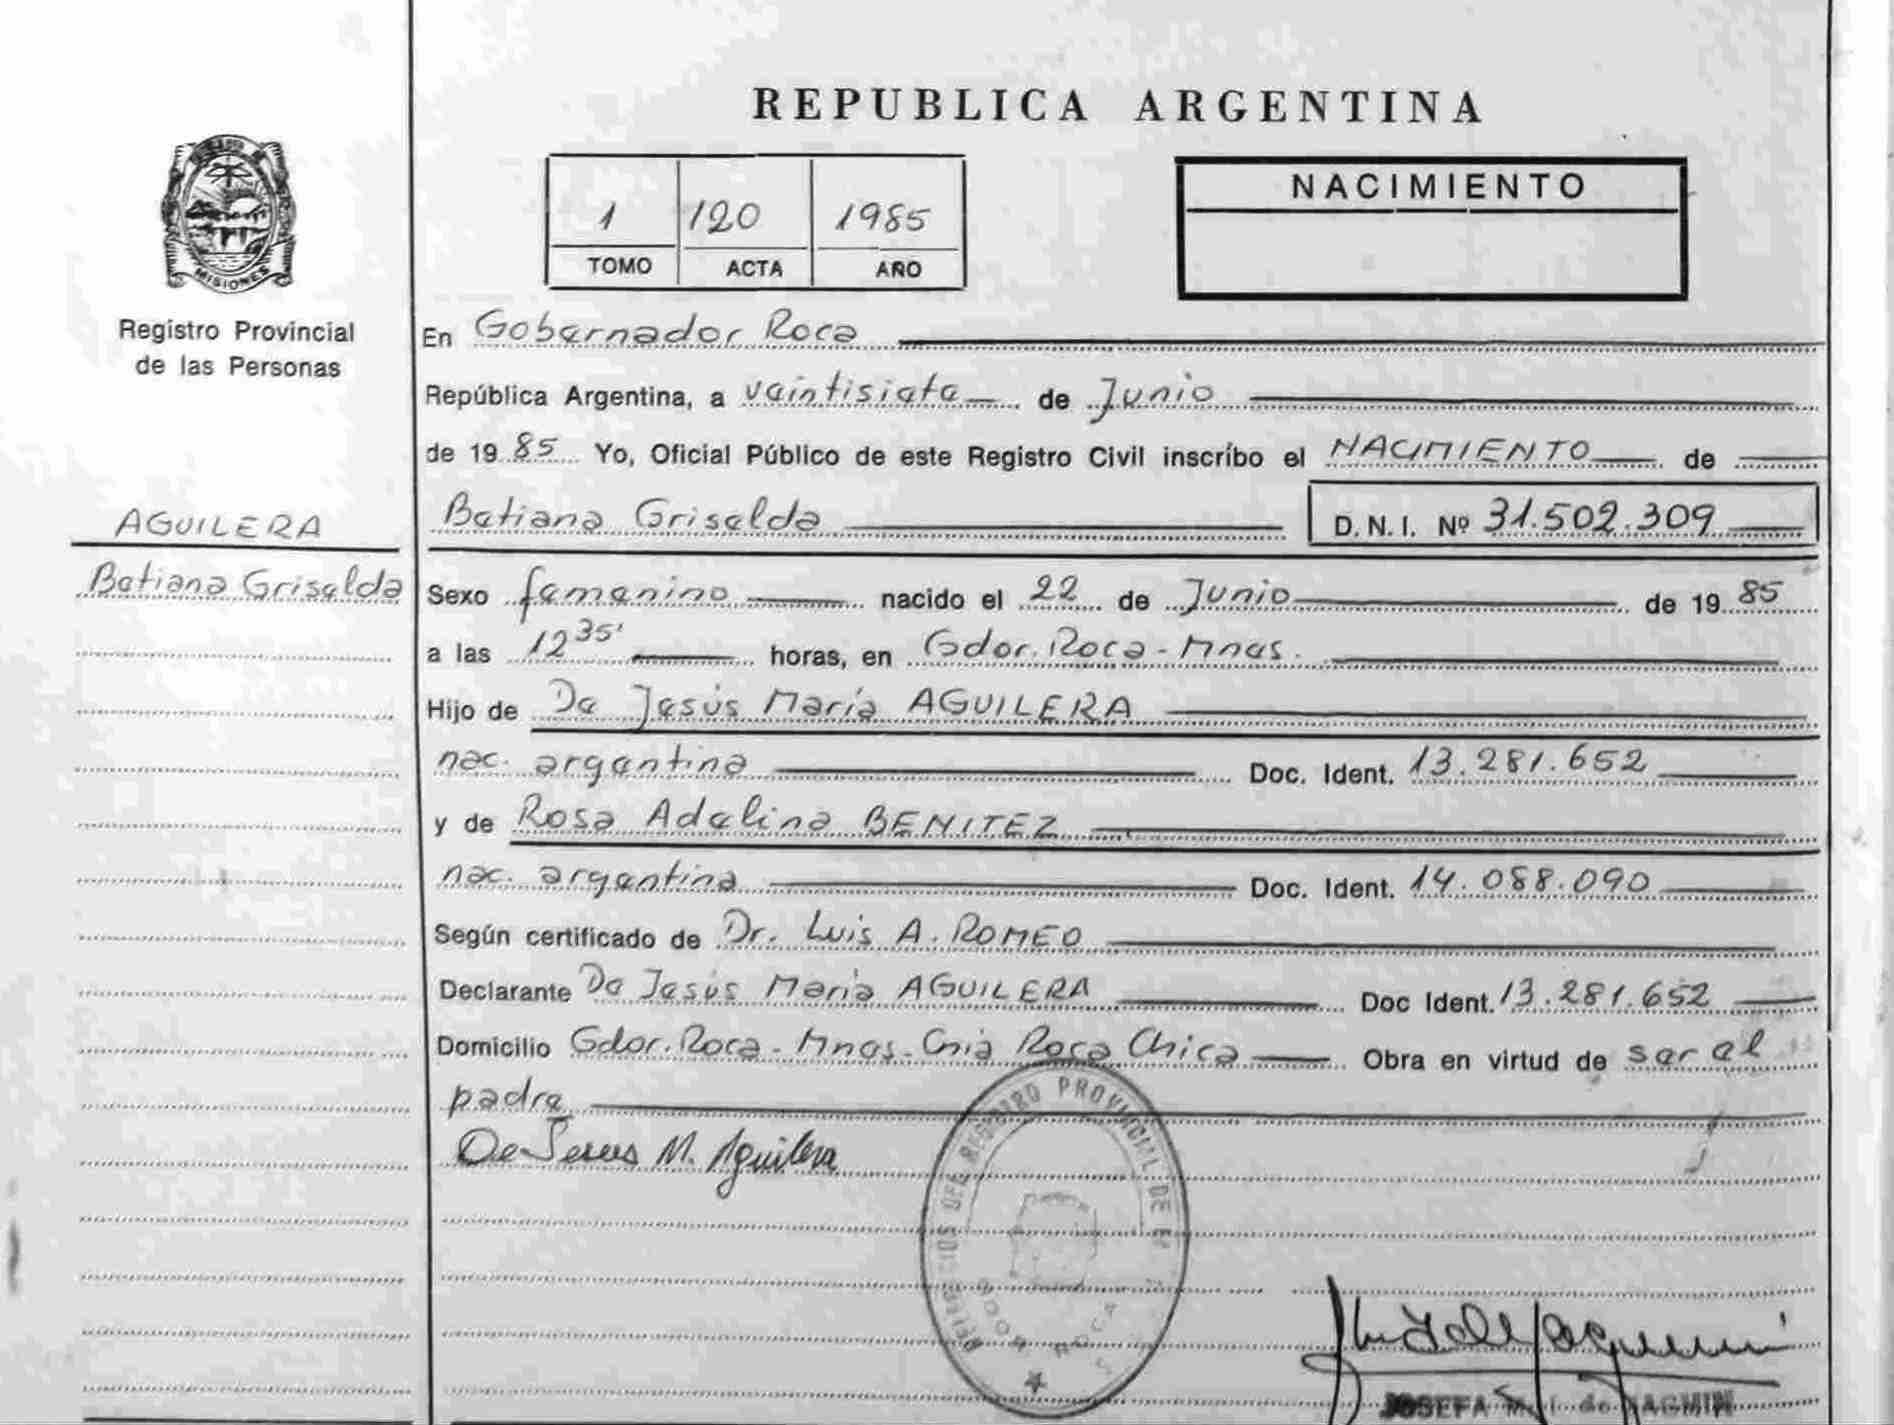 REPUBLICA ARGENTINA
MISIONES
Registro Provincial
de las Personas
1 120 1985
TOMO ACTA AÑO
NACIMIENTO
En Gobernador Roca
República Argentina, a veintisiete de Junio
de 19 85 Yo, Oficial Público de este Registro Civil inscribo el NACIMIENTO de
AGUILERA
Betiana Griselda
Betiana Griselda D.N.I. Nº 31.502.309
Sexo femenino nacido el 22 de Junio de 19 85
a las 12 35' horas, en Gdor. Roca - Mnes.
Hijo de De Jesús María AGUILERA
nac. argentina Doc. Ident. 13.281.652
y de Rosa Adelina BENITEZ
nac. argentina Doc. Ident. 14.088.090
Según certificado de Dr. Luis A. ROMEO
Declarante De Jesús María AGUILERA Doc Ident. 13.281.652
Domicilio Gdor. Roca - Mnes - Cnia Roca Chica Obra en virtud de ser el
padre
De Jesus M. Aguilera
REGISTRO PROVINCIAL DE
GDOR ROCA
JOSEFA